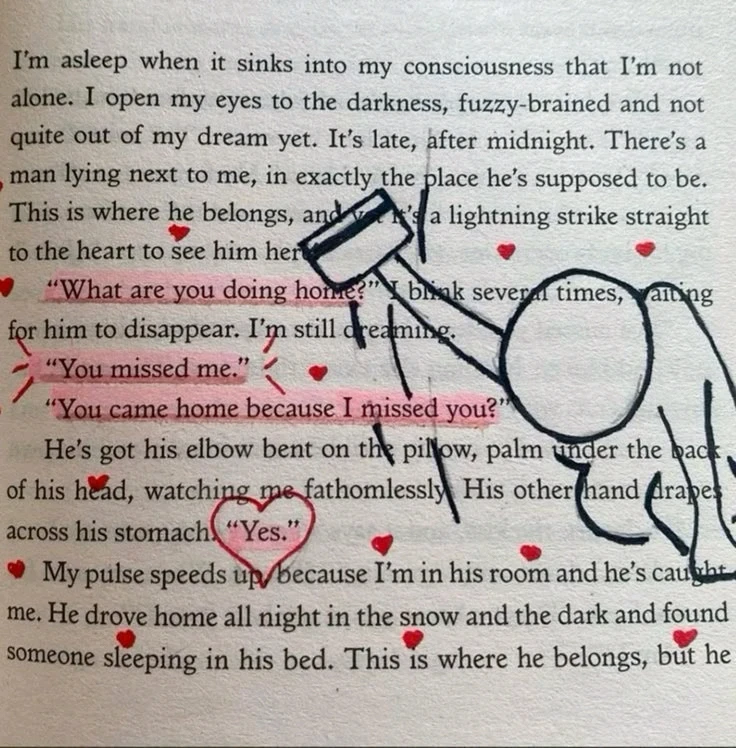 I'm asleep when it sinks into my consciousness that I'm not
alone. I open my eyes to the darkness, fuzzy-brained and not
quite out of my dream yet. It's late, after midnight. There's a
man lying next to me, in exactly the place he's supposed to be.
This is where he belongs, and yet it's a lightning strike straight
to the heart to see him her
“What are you doing home?” I blink several times, waiting
for him to disappear. I'm still dreaming.
“You missed me.”
“You came home because I missed you?”
He's got his elbow bent on the pillow, palm under the back
of his head, watching me fathomlessly. His other hand drapes
across his stomach. “Yes.”
My pulse speeds up, because I'm in his room and he's caught
me. He drove home all night in the snow and the dark and found
someone sleeping in his bed. This is where he belongs, but he